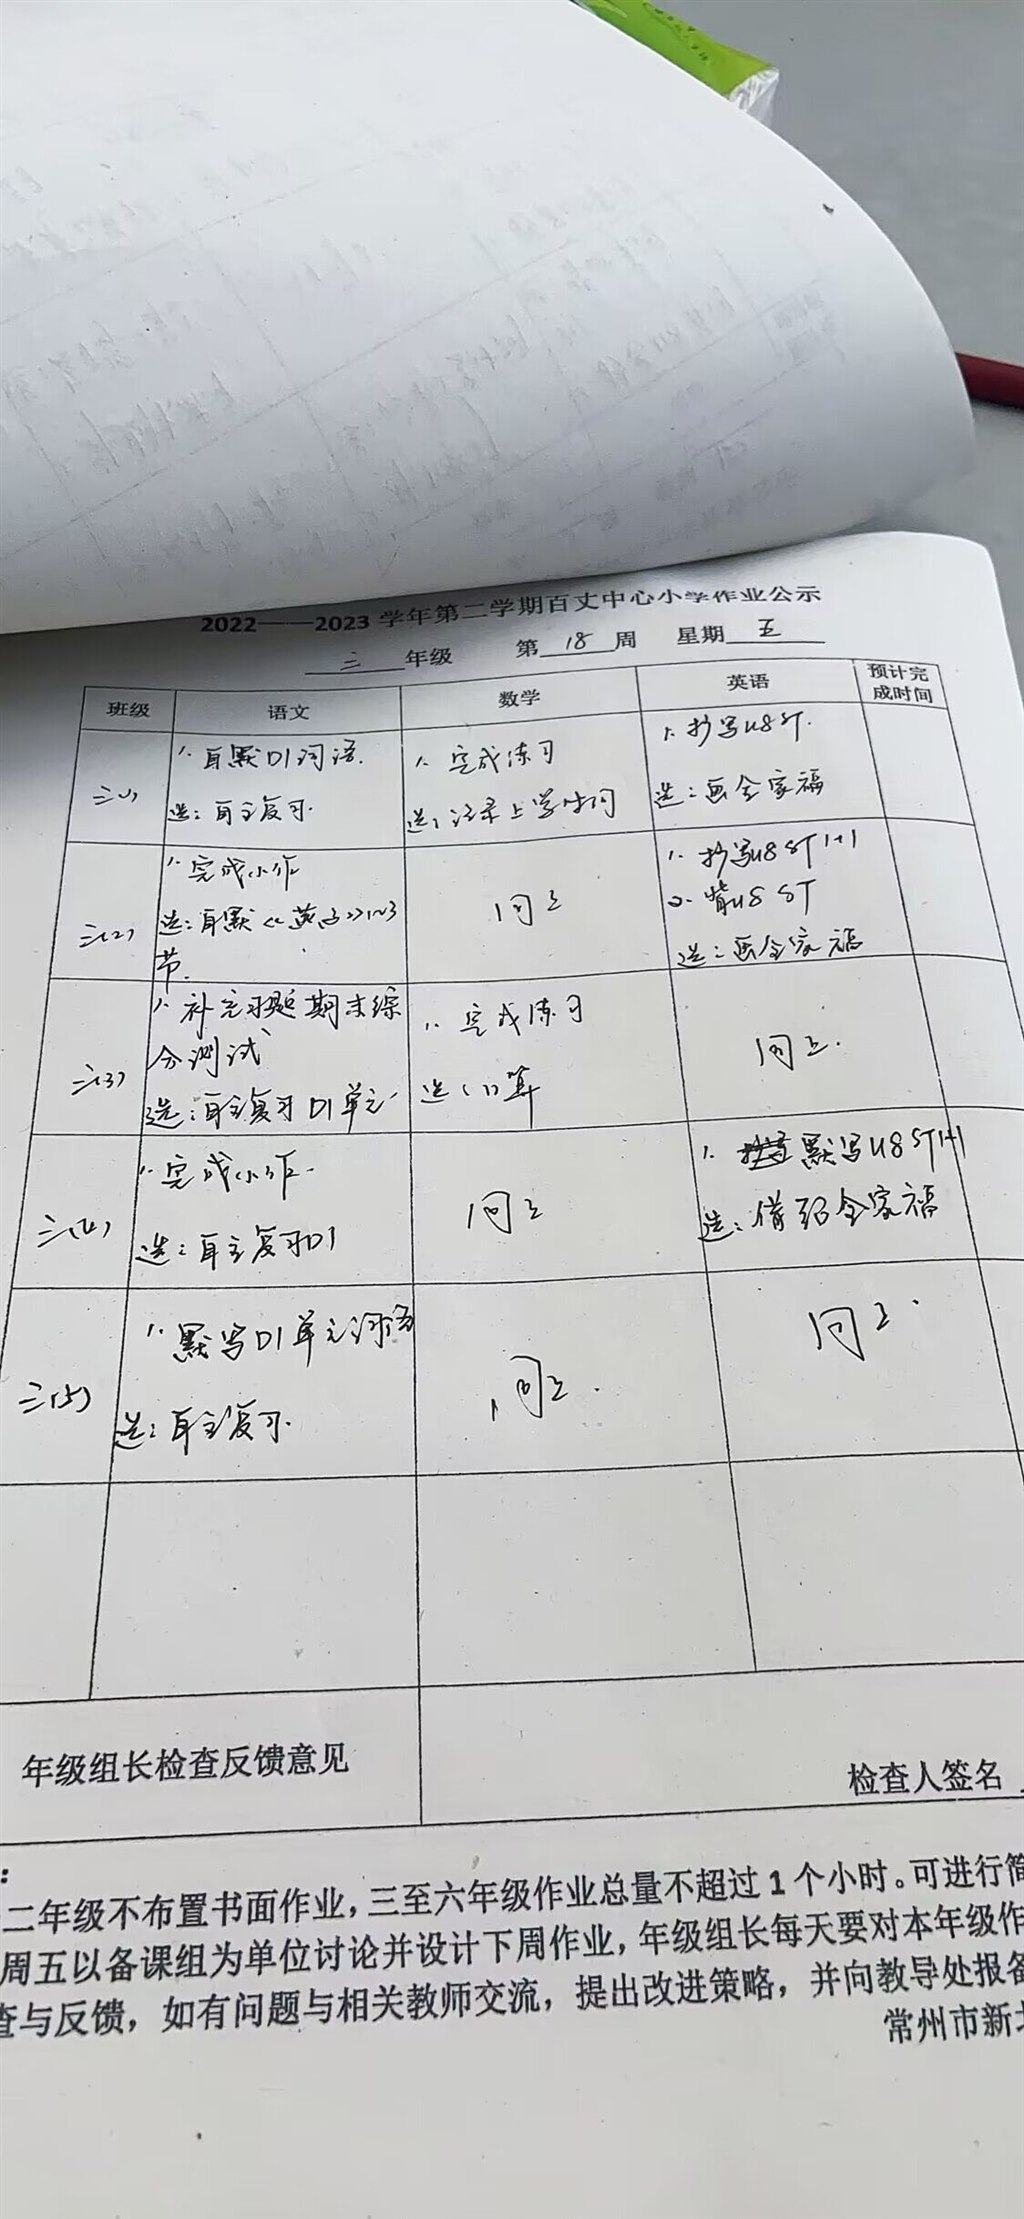 2022——2023 学年第二学期百丈中心小学作业公示
三 年级 第 18 周 星期 五
班级 语文 数学 英语 预计完成时间
三(1)
1. 自默D1词语.
选: 自主复习.
1. 完成练习
选: 记录上学时间
1. 抄写U8 ST.
选: 画全家福
三(2)
1. 完成小作
选: 自默《燕子》1~3
节.
同上
1. 抄写U8 ST 1+1
2. 背U8 ST
选: 画全家福
三(3)
1. 补充习题 期末综
合测试
选: 自主复习 D1单元
1. 完成练习
选: 口算
同上.
三(4)
1. 完成小作.
选: 自主复习D1
同上
1. 默写U8 ST1+1
选: 全家福
三(5)
1. 默写D1单元词语
选: 自主复习.
同上.
同上.
年级组长检查反馈意见
检查人签名
:
二年级不布置书面作业，三至六年级作业总量不超过 1 个小时。可进行简
周五以备课组为单位讨论并设计下周作业，年级组长每天要对本年级作
查与反馈，如有问题与相关教师交流，提出改进策略，并向教导处报备
常州市新北